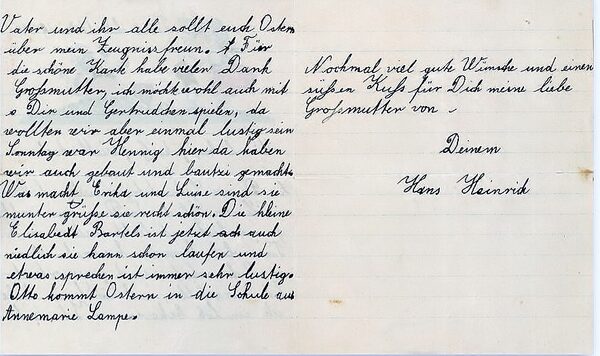 Vater und ihr alle sollt euch Ostern
über mein Zeugniss freun. Für
die schöne Karte habe vielen Dank
Grossmutter, ich möcht wohl auch mit
Dir und Gertrudchen spielen, da
wollten wir aber einmal lustig sein
Sonntag war Hennig hier da haben
wir auch gebaut und bautzi gemacht.
Was macht Erika und Luise sind sie
munter grüsse sie recht schön. Die kleine
Elisabedt Bartels ist jetzt auch
niedlich sie kann schon laufen und
etwas sprechen ist immer sehr lustig.
Otto kommt Ostern in die Schule aus
Annemarie Lampe.
Nochmal viel gute Wünsche und einen
süssen Kuss für Dich meine liebe
Grossmutter von
Deinem
Hans Heinrich